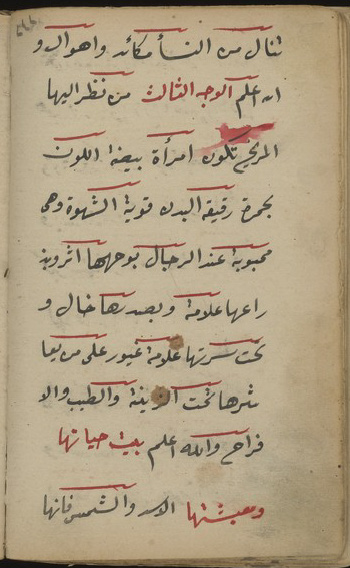 تنال من النسأ مكائد واهوال و
الله اعلم الوجه الثالث من نظر اليها
المريخ تكون امرأة بيضة اللون
بحمرة رقيقة البدن قوية الشهوة وهى
محبوبة عند الرجال بوجهها اثر وبذ
راعها علامة وبصدرها خال و
تحت سرتها علامة غيور على من يعا
شرها تحب الزينة والطيب والا
فراح والله اعلم بيت حياتها
ومعيشتها الاسد والشمس فانها